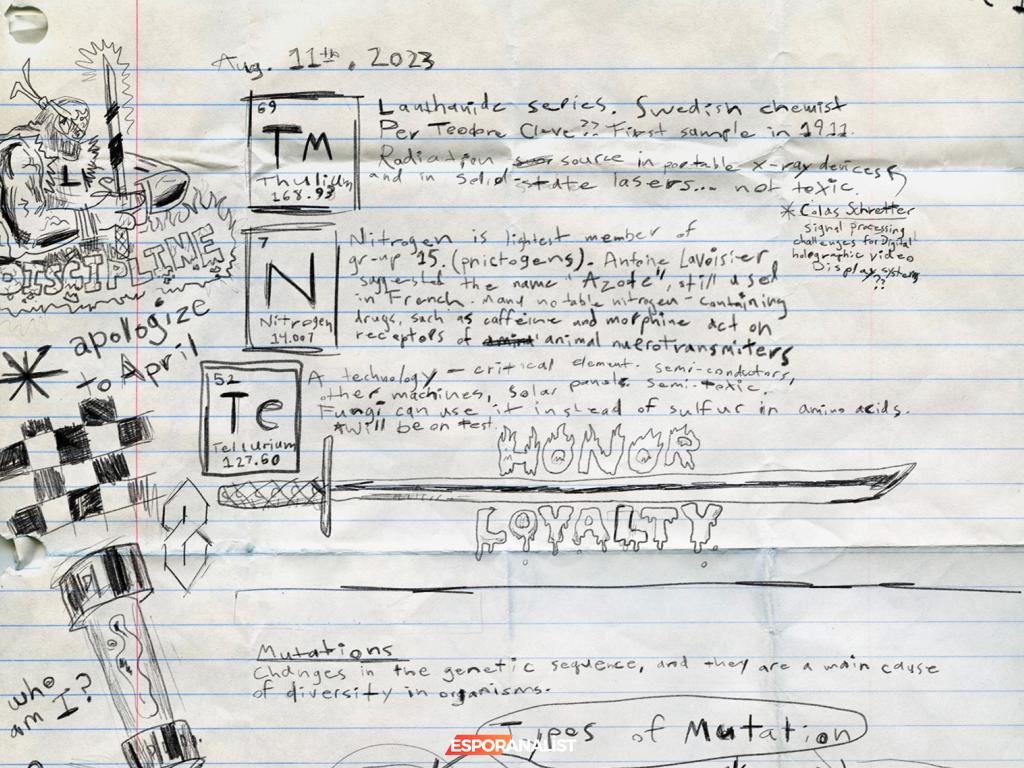 Aug. 11th, 2023
69
Tm
Thulium
168.93
Lanthanide series. Swedish chemist
Per Teodore Cleve?? First sample in 1911.
Radiation source in portable x-ray devices
and in solid-state lasers... not toxic.
* Colas Schretter
signal processing
challenges for Digital
holographic video
Display systems
??
7
N
Nitrogen
14.007
Nitrogen is lightest member of
group 15. (pnictogens). Antoine Lavoisier
suggested the name "Azote", still used
in French. Many notable nitrogen-containing
drugs, such as caffeine and morphine act on
receptors of animal nuerotransmiters
52
Te
Tellurium
127.60
A technology - critical element. semi-conductors,
other machines, solar panels. semi-toxic.
Fungi can use it instead of sulfur in amino acids.
*will be on test.
LI
DISCIPLINE
* apologize
to April
HONOR
LOYALTY
who
am I?
Mutations
Changes in the genetic sequence, and they are a main cause
of diversity in organisms.
Types of Mutation
ESPORANALIST